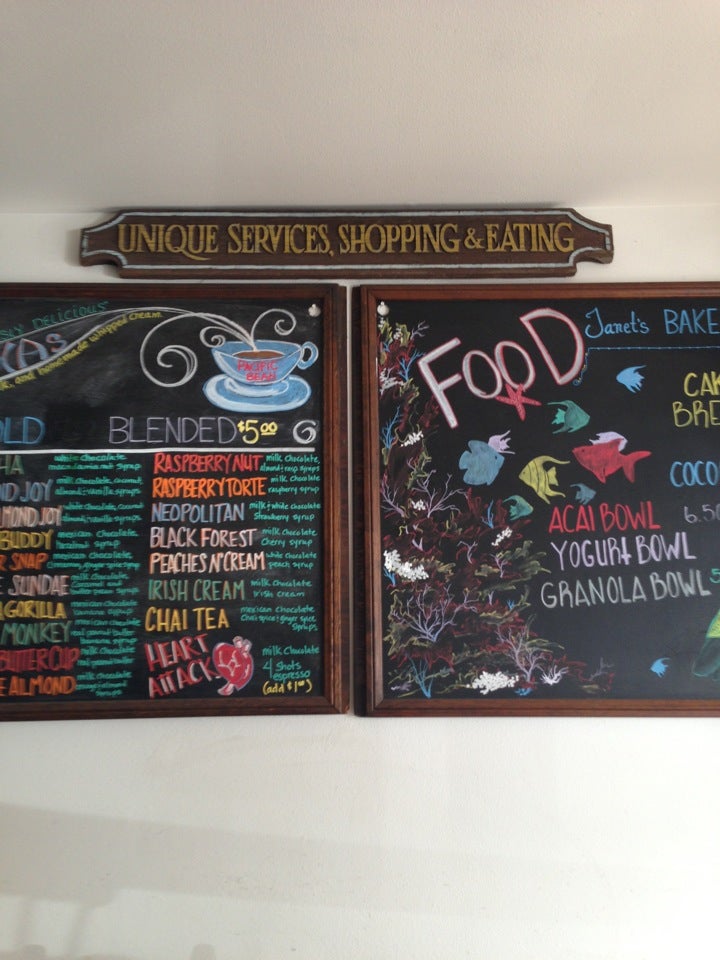 UNIQUE SERVICES, SHOPPING & EATING
DELICIOUS
and homemade whipped cream
PACIFIC
BEAN
OLD BLENDED $5.00
white chocolate
macadamia nut syrup
ND JOY milk chocolate, coconut,
almond & vanilla syrups
MOND JOY white chocolate, coconut
almond & vanilla syrups
BUDDY mexican chocolate,
hazelnut syrup
R SNAP mexican chocolate,
E SUNDAE milk chocolate,
caramel and
GORILLA mexican chocolate
MONKEY mexican chocolate
real peanut butter
banana syrup
BUTTER CUP milk chocolate
real peanut butter
E ALMOND milk chocolate
syrups
RASPBERRY NUT milk chocolate,
almond & rasp. syrups
RASPBERRY TORTE milk chocolate
raspberry syrup
NEOPOLITAN milk & white chocolate
strawberry syrup
BLACK FOREST milk chocolate
cherry syrup
PEACHES N' CREAM white chocolate
peach syrup
IRISH CREAM milk chocolate
irish cream
CHAI TEA mexican chocolate
chai spice & ginger spice
syrups
HEART
ATTACK milk chocolate
4 shots
espresso
(add $1.00)
FOOD
Janet's BAKE
CAK
BRE
COCO
6.50
ACAI BOWL
YOGURT BOWL
GRANOLA BOWL